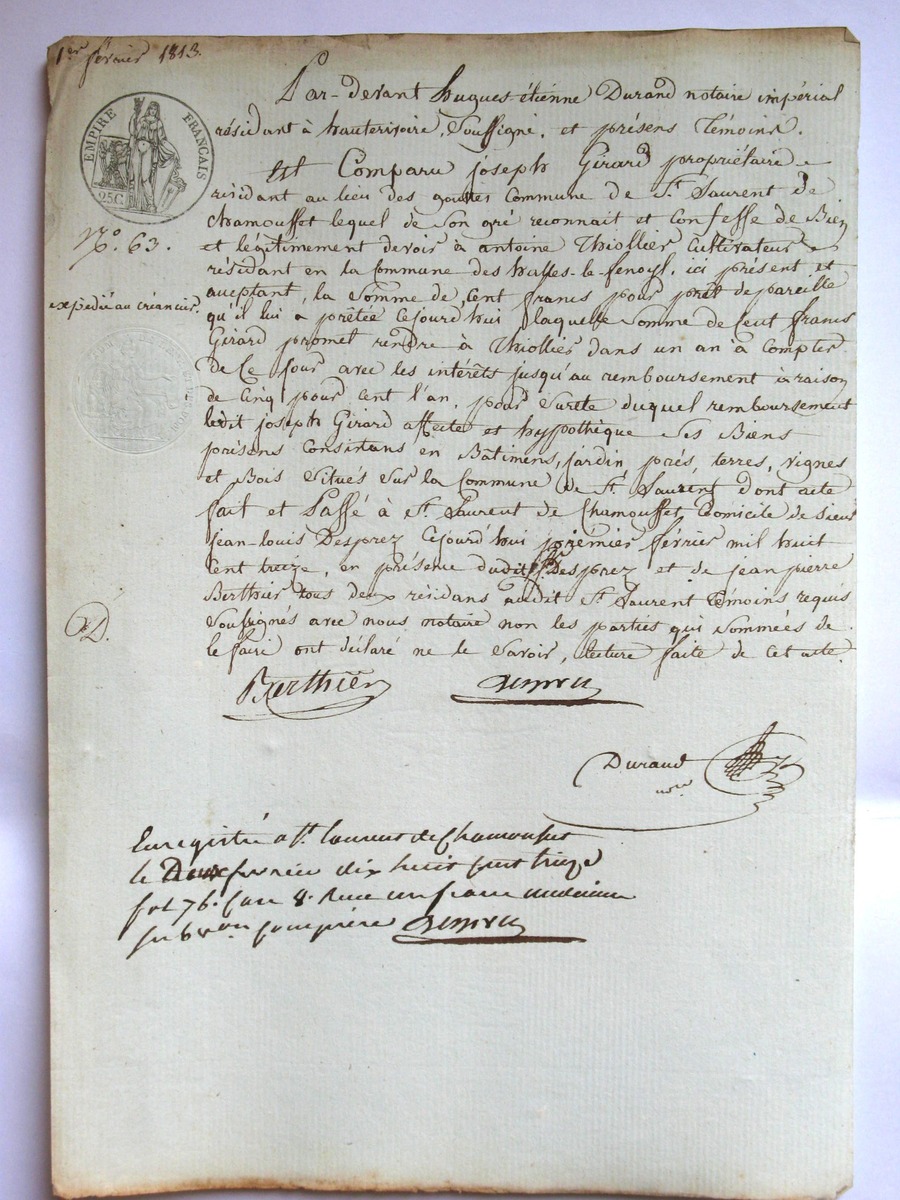 1er février 1813.
EMPIRE FRANÇAIS
25 C.
No. 63.
expédié au créancier.
D.
Par-devant hugues-étienne Durand notaire impérial
résidant à hauterivoire, soussigné, et présens témoins.
Est Comparu joseph Girard propriétaire
résidant au lieu des gouttes Commune de St. Laurent de
Chamousset lequel de son gré reconnait et confesse de Bien
et légitimement devoir à antoine Thiollier Cultivateur
résidant en la Commune des halles-le-fenoyl, ici présent et
acceptant, la somme de Cent francs pour prêt de pareille
qu'il lui a prêtée Cejourd'hui laquelle somme de Cent francs
Girard promet rendre à Thiollier dans un an à Compter
de Ce Jour avec les intérêts jusqu'au remboursement à raison
de Cinq pour cent l'an, pour sureté duquel remboursement
ledit joseph Girard affecte et hypothèque ses Biens
présens Consistans en Bâtimens, jardin, prés, terres, vignes
et Bois situés sur la Commune de St. Laurent dont acte
fait et Passé à St. Laurent de Chamousset Domicile de sieur
jean-louis Desprez Cejourd'hui premier février mil huit
cent treize, en présence dudit Sr. Desprez et de jean pierre
Berthier tous deux résidans audit St. Laurent témoins requis
soussignés avec nous notaire non les parties qui sommées de
le faire ont déclaré ne le savoir, lecture faite de cet acte.
Berthier Desprez
Durand
nore
Enregistré a St. laurent de Chamousset
le Deux fevrier dix huit cent treize
fol 76. Case 8. Recu un franc
compris Desprez